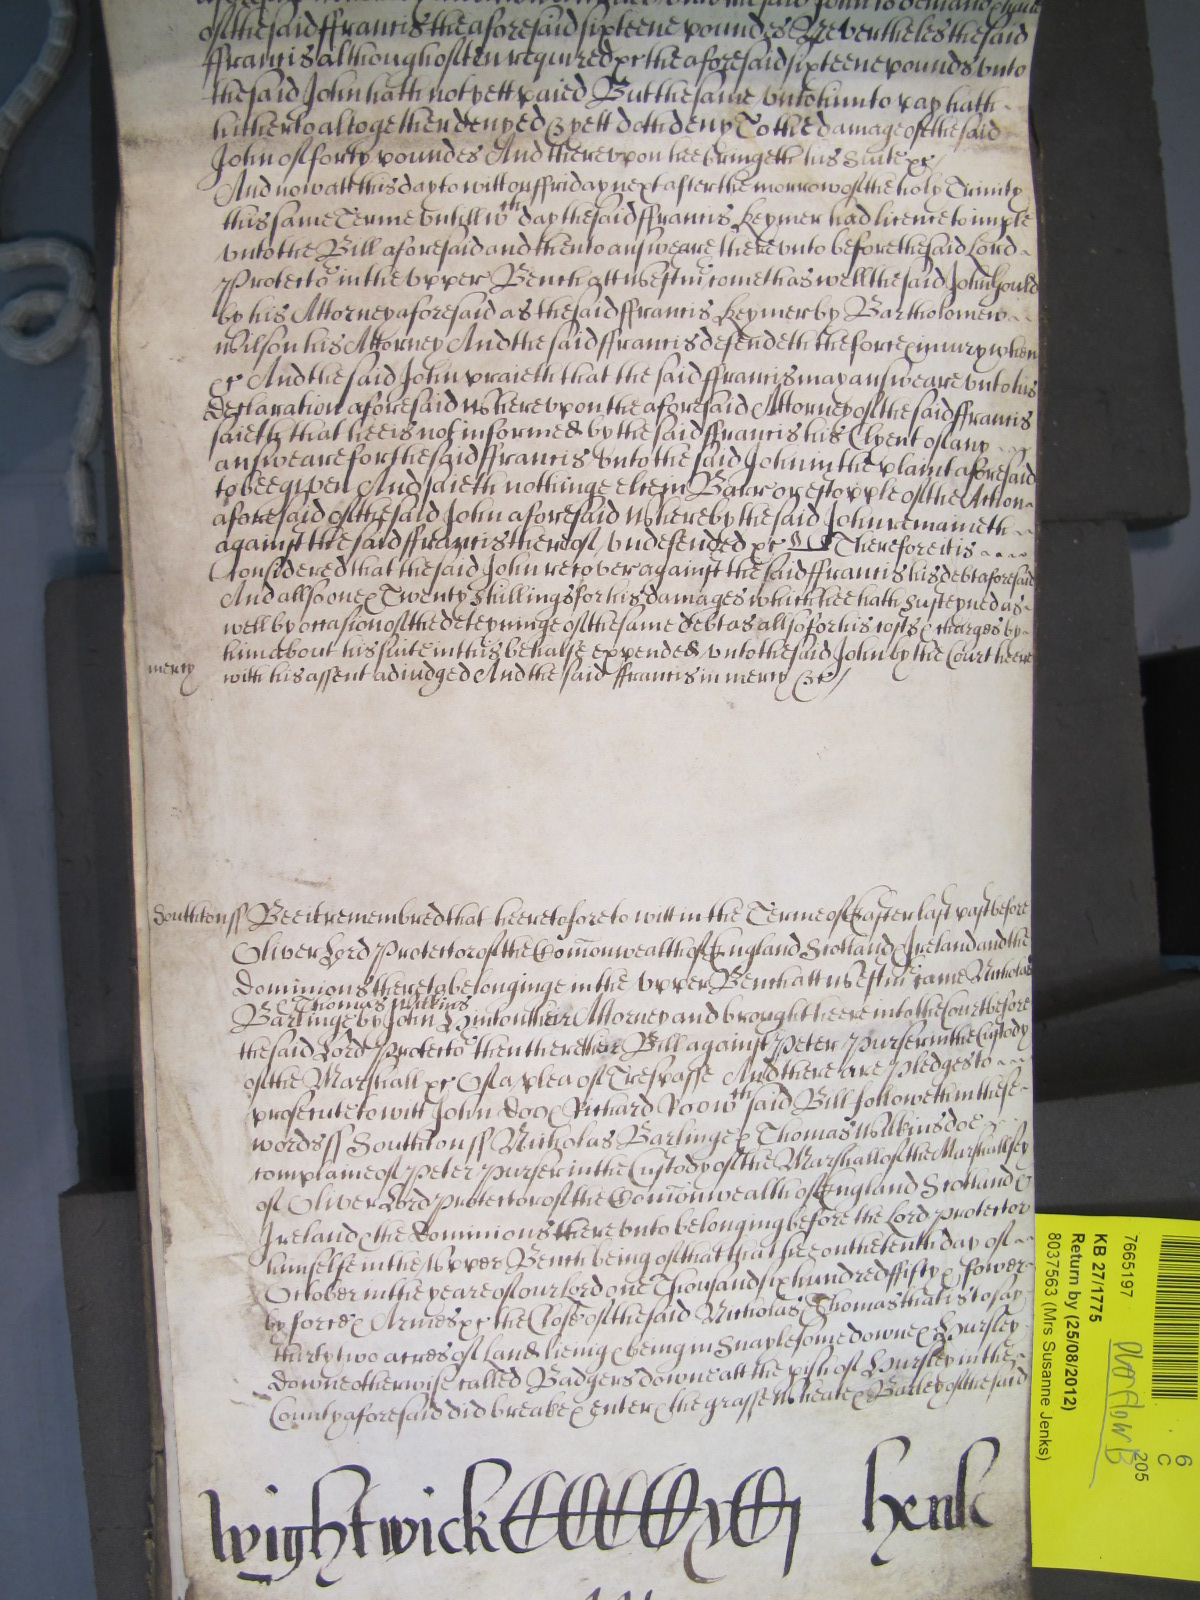 of the said ffrancis the aforesaid sixteene poundes Nevertheles the said
ffrancis although often required &c the aforesaid sixteene pounds vnto
the said John hath not yett paied But the same vnto him to pay hath
hitherto altogether denyed & yett doth deny To the damage of the said
John of forty poundes And therevpon hee bringeth his suite &c
And now att this day to witt on ffriday next after the morrow of the holy Trinity
this same Terme vntill wth day the said ffrancis Keymer had licence to imple
vnto the Bill aforesaid and then to answeare there vnto before the said Lord
Protector in the vpper Bench att Westmr come thas well the said John Gould
by his Attorney aforesaid as the said ffrancis Keymer by Bartholomew
Wilson his Attorney And the said ffrancis defendeth the force & iniury when
&c And the said John praieth that the said ffrancis may answeare vnto his
declaration aforesaid Wherevpon the aforesaid Attorney of the said ffrancis
saieth that hee is not informed by the said ffrancis his Clyent of any
answeare for the said ffrancis vnto the said John in the plaint aforesaid
to bee given And saieth nothinge els in Barr or estopple of the Action
aforesaid of the said John aforesaid Whereby the said John remaineth
against the said ffrancis thereof vndefended &c Therefore it is
Considered that the said John recover against the said ffrancis his debt aforesaid
And allsoe Twenty shillings for his damages which hee hath susteyned as
well by occasion of the deteyninge of the same debt as allso for his costs & charges by
him about his suite in this behalfe expended vnto the said John by the Court heere
mercy with his assent adiudged And the said ffrancis in mercy &c
Southton ss Bee it remembred that heeretofore to witt in the Terme of Easter last past before
Oliver Lord Protector of the Comonwealth of England Scotland & Ireland and the
Dominions thereto belonginge in the vpper Bench att Westmr came Nicholas
& Thomas Wilkins
Barlinge by John Hinton their Attorney and brought heere into the Court before
the said Lord Protector then there their Bill against Peter Purser in the Custody
of the Marshall &c Of a plea of Trespasse And there are pledges to
prosecute to witt John Doo & Richard Roo wth said Bill followeth in these
words ss Southton ss Nicholas Barlinge & Thomas Wilkins doe
complaine of Peter Purser in the Custody of the Marshall of the Marshallsey
of Oliver Lord Protector of the Comonwealth of England Scotland &
Ireland & the Dominions there vnto belonging before the Lord Protector
himselfe in the Vpper Bench being of that that hee on the tenth day of
October in the yeare of our Lord one Thousand six hundred ffifty & fower
by force & Armes &c the Close of the said Nicholas & Thomas that is to say
thirty two acres of Land lieing & being in Snaplesome downe & Hursley
downe otherwise called Badgers downe att the pish of Hursley in the
County aforesaid did breake & enter & the grasse Wheate & Barley of the said
Wightwick
7665197
KB 27/1775
Return by (25/08/2012)
8037563 (Mrs Susanne Jenks)
6
C
205